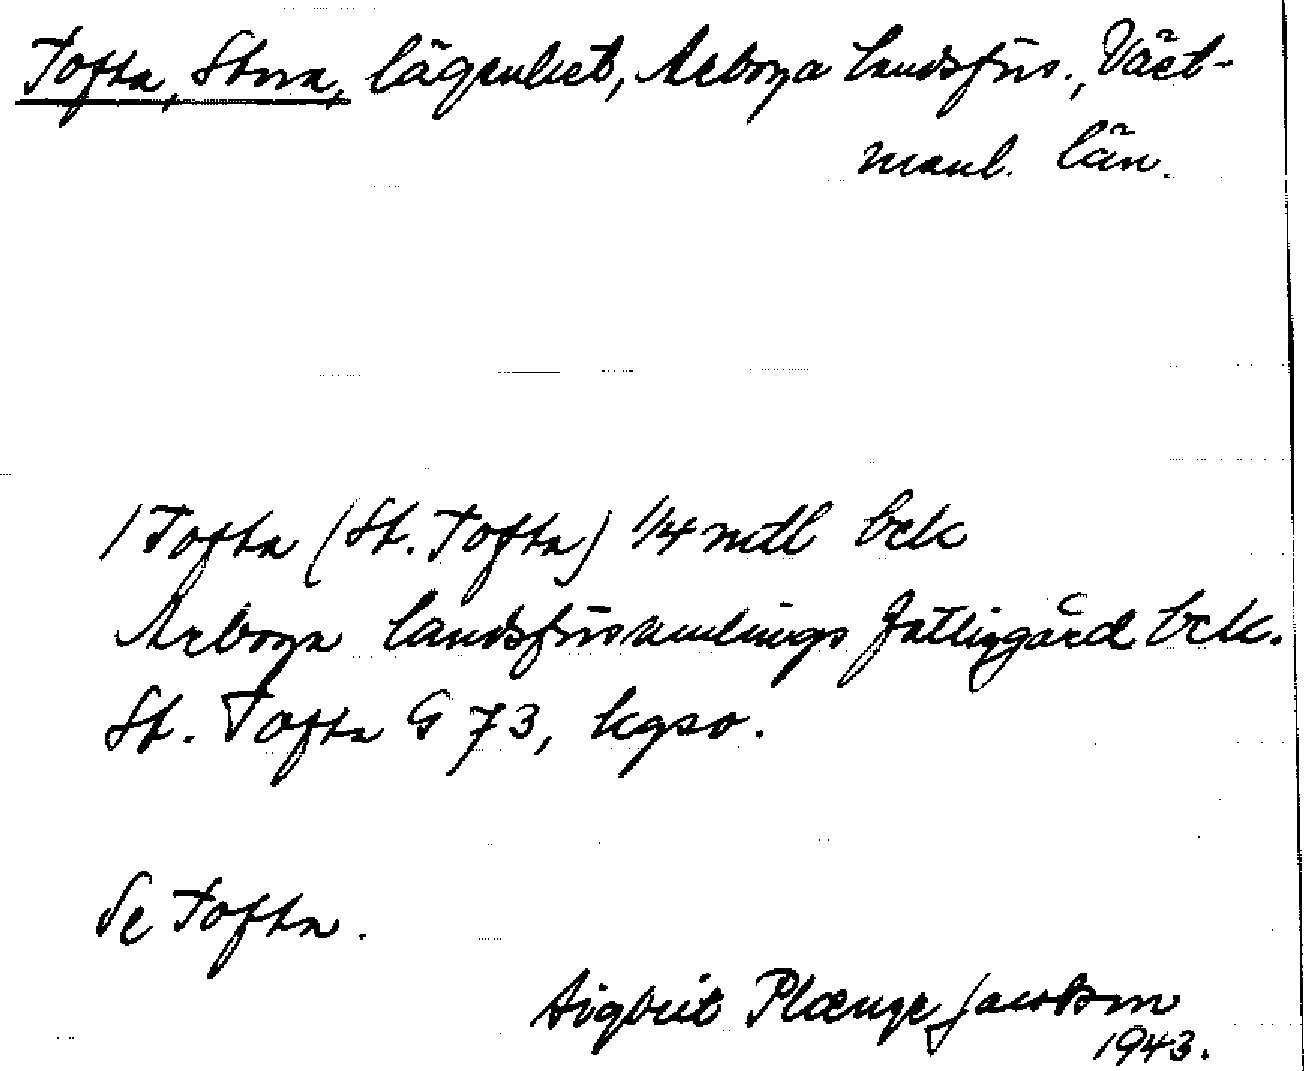 Tofta, Stora, lägenhet, Arboga landsförs., Väst-
manl. län.
1 Tofta (St. Tofta) 1/4 mtl bek
Arboga landsförsamlings fattiggård bek.
St. Tofta G 73, kgso.
Se Tofta.
Sigbrit Plænge Jacobson
1943.